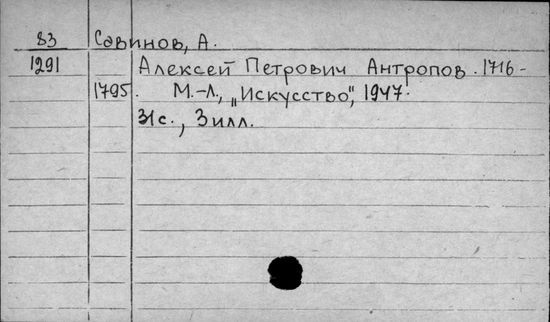 83 Савинов, А.
1291 Алексей Петрович Антропов. 1716-
1795. М.-Л., „Искусство", 1947.
31с., 3 илл.